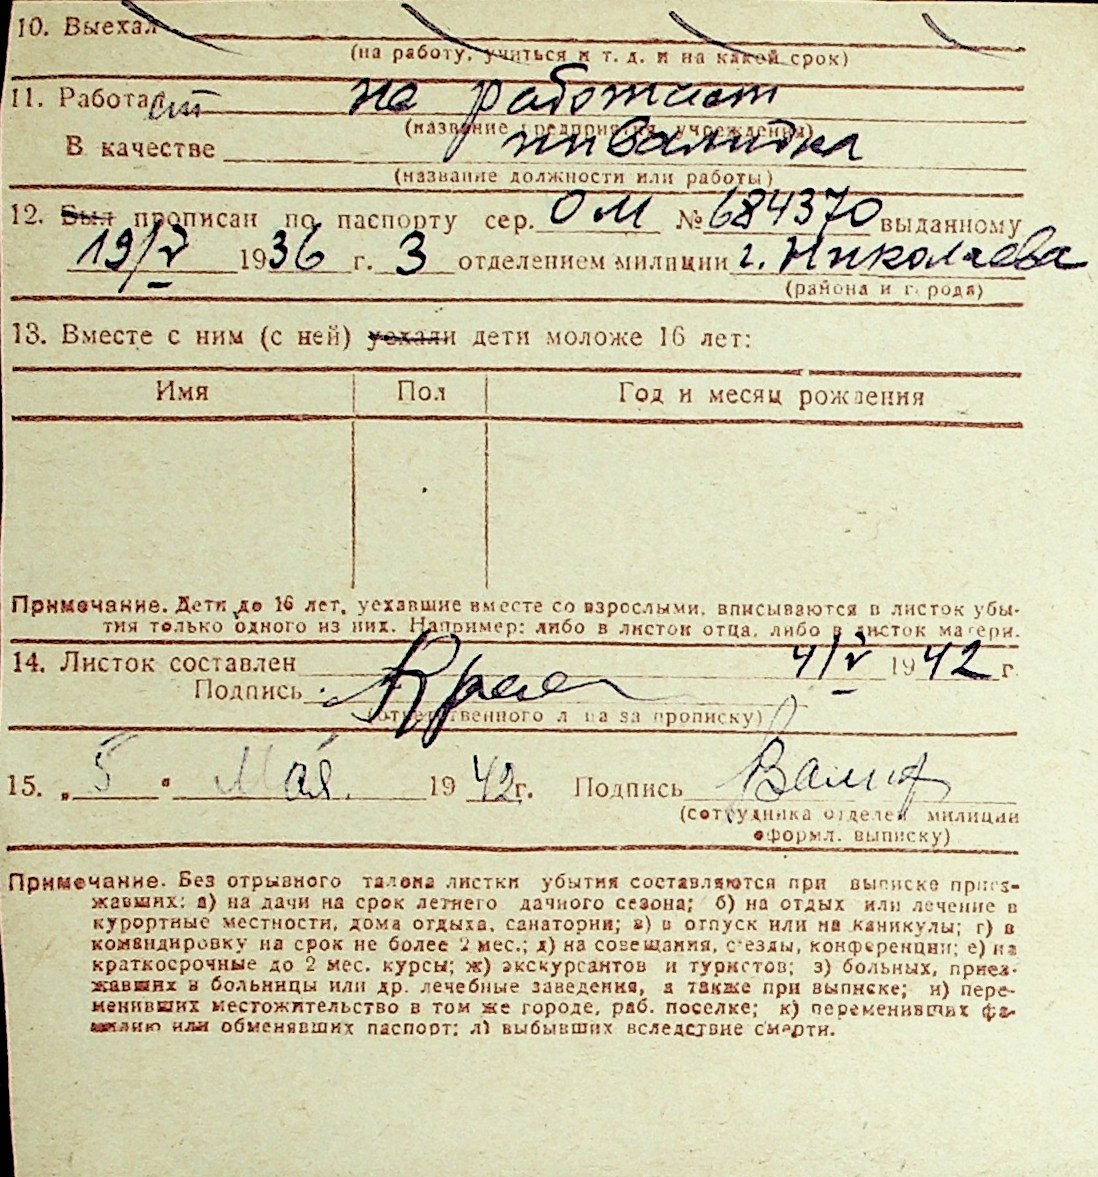 10. Выехал
(на работу, учиться и т. д. и на какой срок)
11. Работает не работает
(название предприятия, учреждения)
В качестве инвалидка
(название должности или работы)
12. Был прописан по паспорту сер. ОМ № 684370 выданному
19/V 1936 г. 3 отделением милиции г. Николаева
(района и города)
13. Вместе с ним (с ней) уехали дети моложе 16 лет:
Имя Пол Год и месяц рождения
Примечание. Дети до 16 лет, уехавшие вместе со взрослыми, вписываются в листок убы-
тия только одного из них. Например: либо в листок отца, либо в листок матери.
14. Листок составлен 4/V 1942 г.
Подпись
(ответственного лица за прописку)
15. „5" Мая 1942 г. Подпись
(сотрудника отделен. милиции
оформл. выписку)
Примечание. Без отрывного талона листки убытия составляются при выписке приез-
жавших: а) на дачи на срок летнего дачного сезона; б) на отдых или лечение в
курортные местности, дома отдыха, санатории; в) в отпуск или на каникулы; г) в
командировку на срок не более 2 мес.; д) на совещания, съезды, конференции; е) на
краткосрочные до 2 мес. курсы; ж) экскурсантов и туристов; з) больных, приез-
жавших в больницы или др. лечебные заведения, а также при выписке; и) пере-
менивших местожительство в том же городе, раб. поселке; к) переменивших фа-
милию или обменявших паспорт; л) выбывших вследствие смерти.